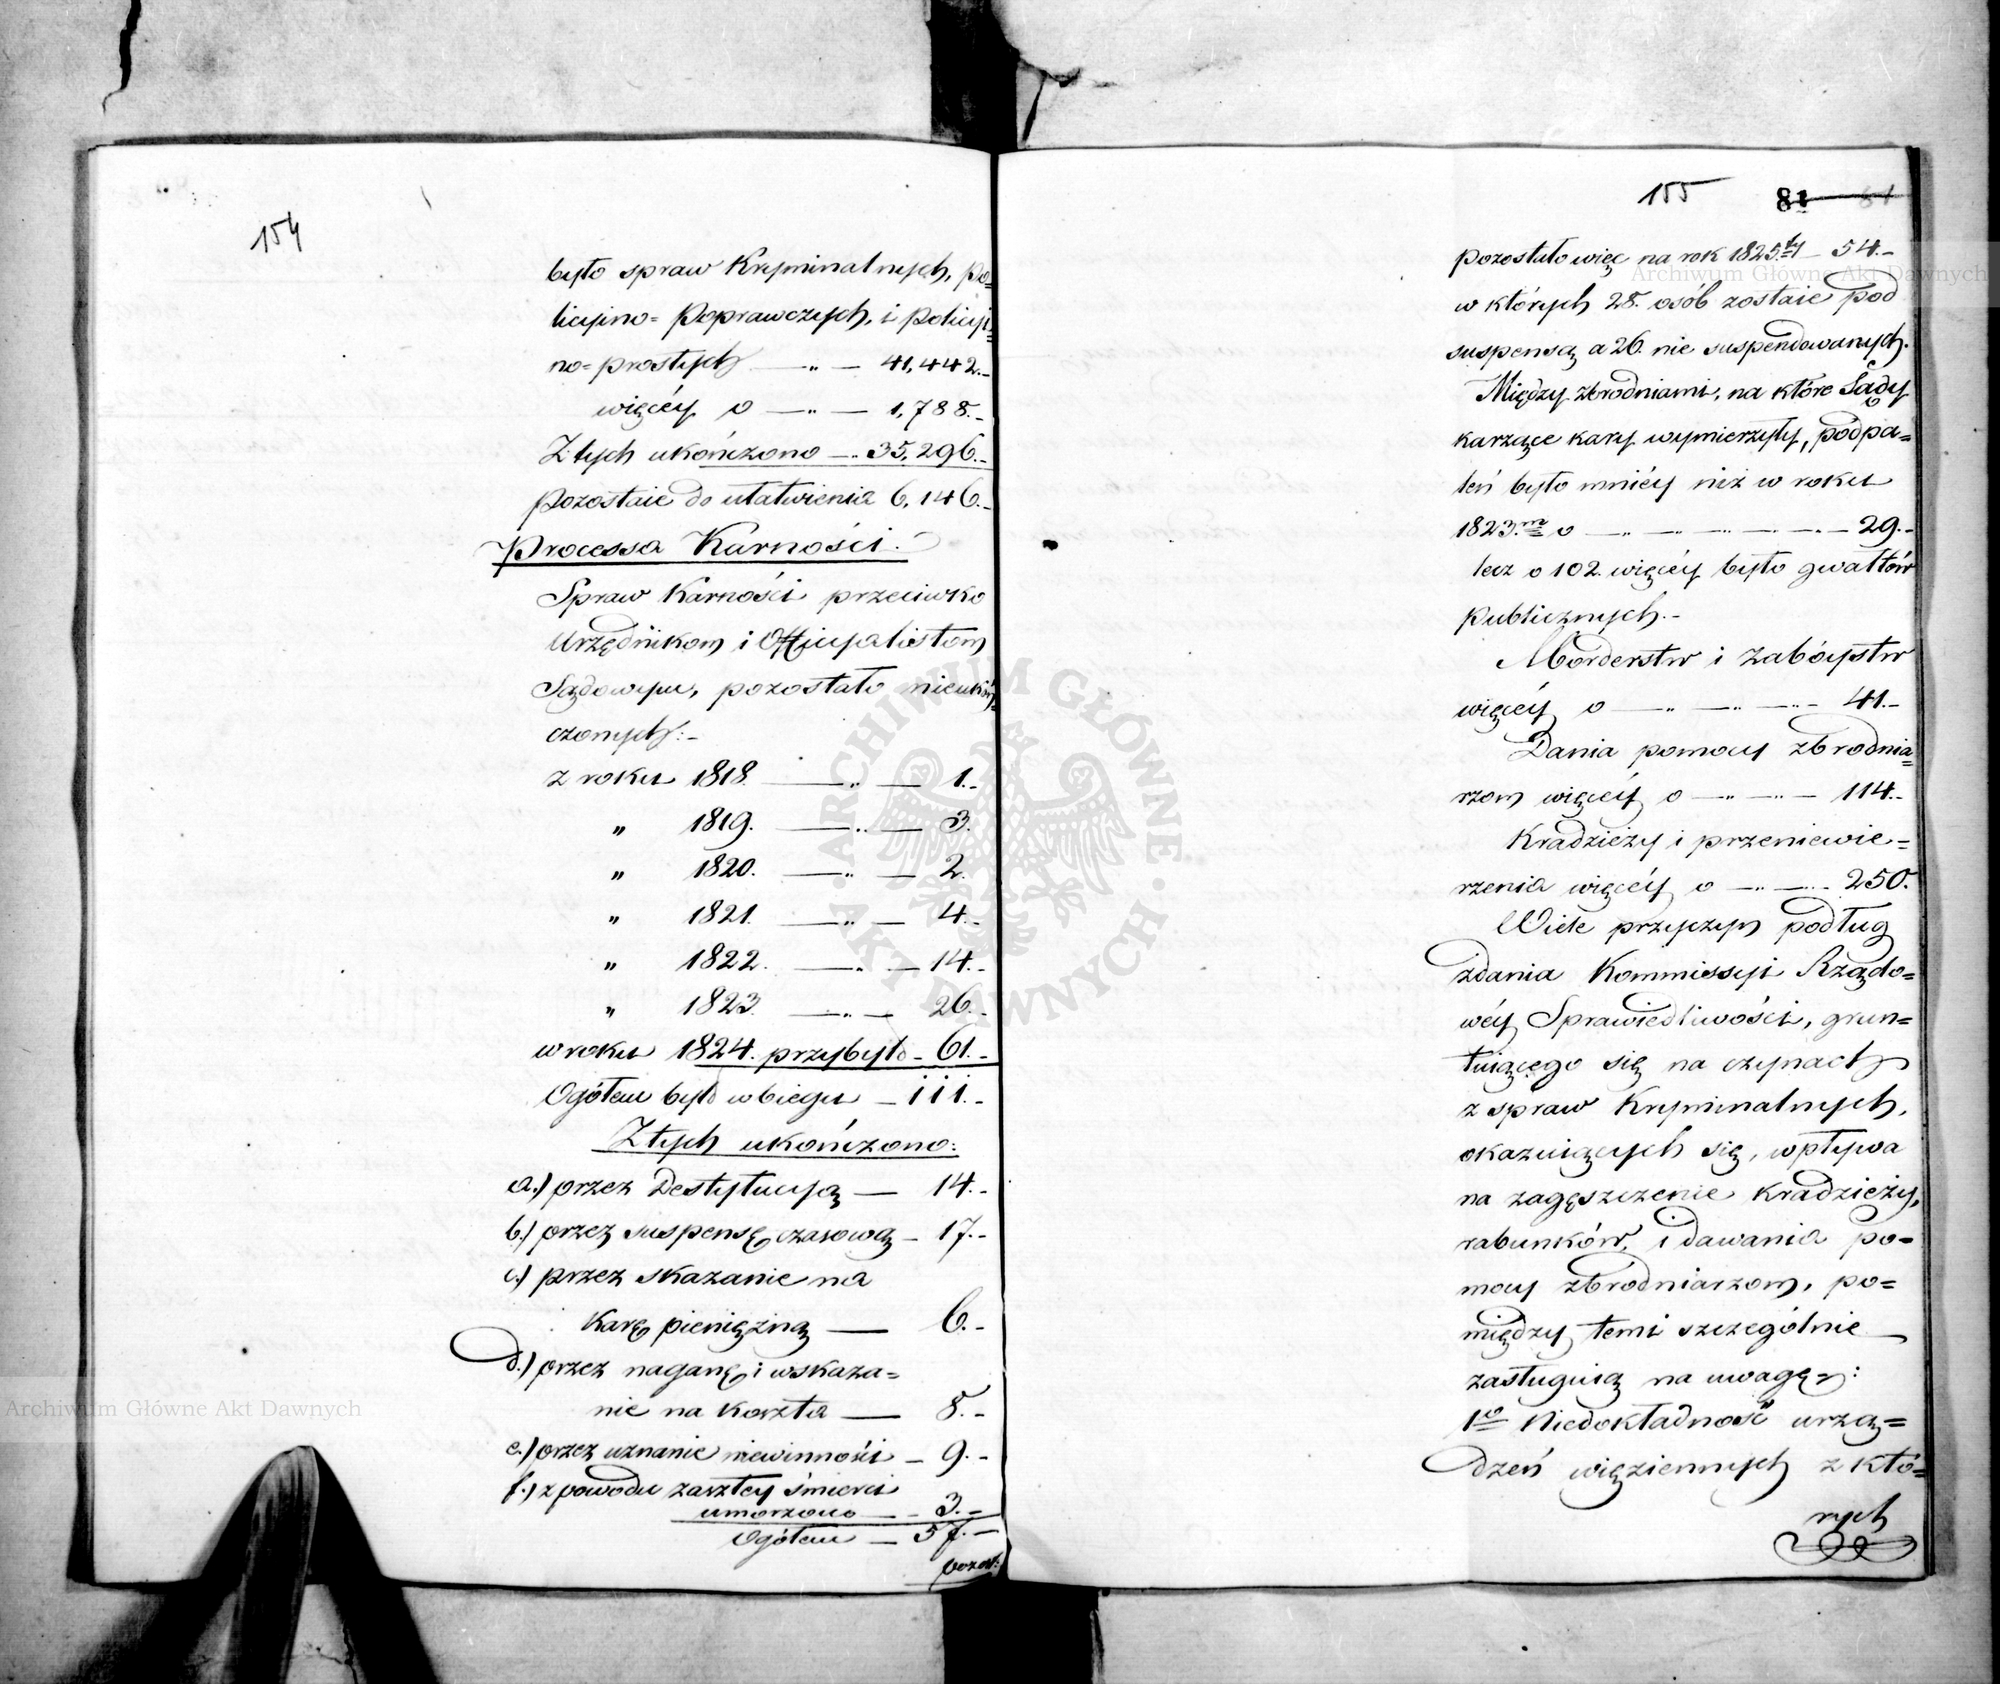 154
było spraw Kryminalnych, po=
licyino= Poprawczych, i Policyi=
no= prostych — „ — 41,442.-
więcéy o — „ — 1,788.-
Z tych ukończono — „ 35,296.-
Pozostaie do ułatwienia 6,146.-
Processa Karności.
Spraw Karności przeciwko
Urzędnikom i Officyalistom
Sądowym, pozostało nieukoń=
czonych:-
z roku 1818. — „ — 1.-
„ 1819. — „ — 3.
„ 1820. — „ — 2.
„ 1821. — „ — 4.-
„ 1822. — „ — 14.-
„ 1823. — „ — 26.-
w roku 1824. przybyło - 61.-
Ogółem było w biegu — 111.-
Z tych ukończono:
a.) przez Destytucyą — 14.-
b.) przez suspensę czasową — 17.-
c.) przez skazanie na
Karę pieniężną — 6.-
d.) przez naganę i wskaza=
nie na koszta — 8.-
e.) przez uznanie niewinności — 9.-
f.) z powodu zaszłey śmierci
umorzono — - 3.-
Ogółem — 57.-
pozost:
155 81
pozostało więc na rok 1825.ty — 54.-
w których 28. osób zostaie pod
suspensą a 26. nie suspendowanych.
Między zbrodniami, na które Sądy
karzące kary wymierzyły, podpa=
leń było mniéy niż w roku
1823.m o — „ — „ — „ — 29.-
lecz o 102. więcéy było gwałtów
publicznych.-
Morderstw i zabóystw
więcéy o — „ — „ — 41.-
Dania pomocy zbrodnia=
rzom więcéy o — „ — „ — 114.-
Kradzieży i przeniewie=
rzenia więcéy o — „ — „ - 250.
Wiele przyczyn podług
zdania Kommissyi Rządo=
wéy Sprawiedliwości, grun=
tuiącego się na czynach
z spraw Kryminalnych,
okazuiących się, wpływa
na zagęszczenie kradzieży,
rabunków, i dawania po=
mocy zbrodniarzom, po=
między temi szczególnie
zasługuią na uwagę:
1o Niedokładność urzą=
dzeń więziennych z któ=
rych
Archiwum Główne Akt Dawnych
Archiwum Główne Akt Dawnych
· ARCHIWUM GŁÓWNE · AKT DAWNYCH